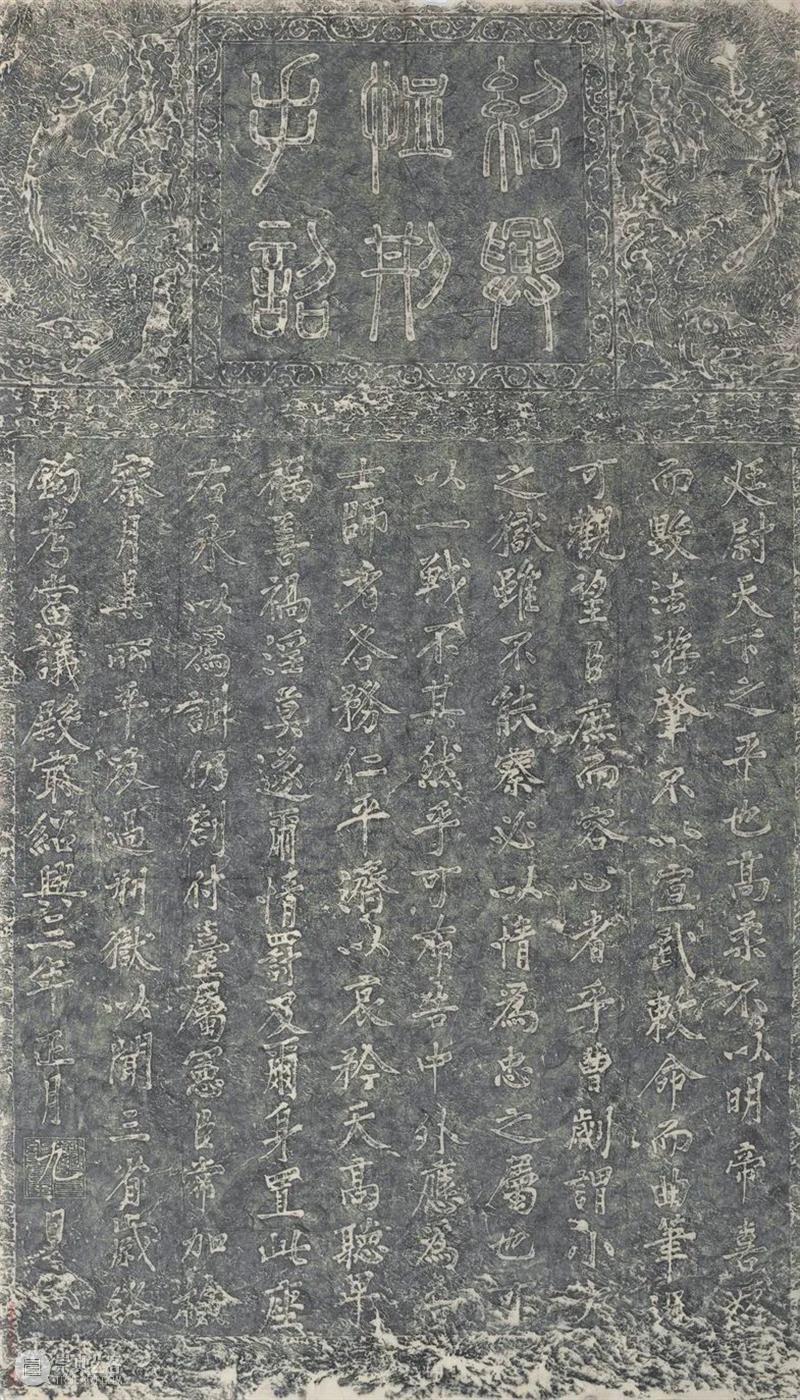 紹興
恤刑
手詔
廷尉天下之平也髙柔不以明帝喜怒
而毀法游肇不以宣武敕命而曲筆況
可觀望臣庶而容心者乎曹劌謂小大
之獄雖不能察必以情爲忠之屬也可
以一戰不其然乎可布告中外應爲
士師者各務仁平濟以哀矜天髙聽卑
福善禍淫莫遂爾情罰及爾身置此座
右永以爲訓仍劄付臺屬憲臣常加檢
察月具所平反過刑獄以聞三省歲終
鉤考當議殿最紹興二年正月九日